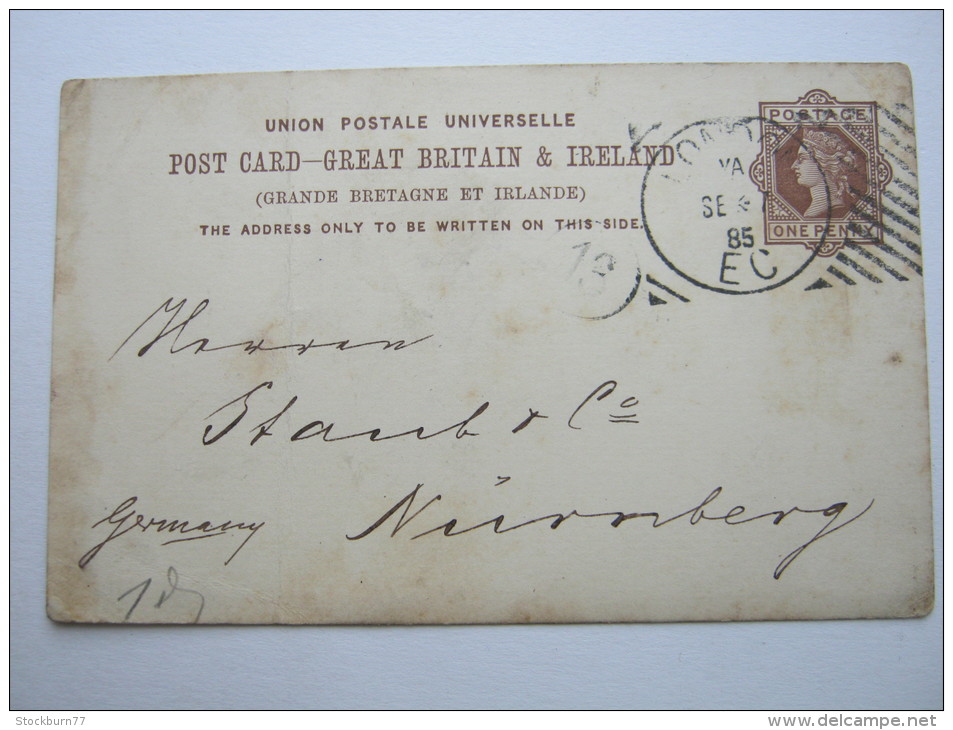 UNION POSTALE UNIVERSELLE
POST CARD—GREAT BRITAIN & IRELAND
(GRANDE BRETAGNE ET IRLANDE)
THE ADDRESS ONLY TO BE WRITTEN ON THIS SIDE.
POSTAGE
ONE PENNY
YA
SE
85
EC
Herren
Staub & Co
Nürnberg
Germany
Stockburn77
www.delcampe.net